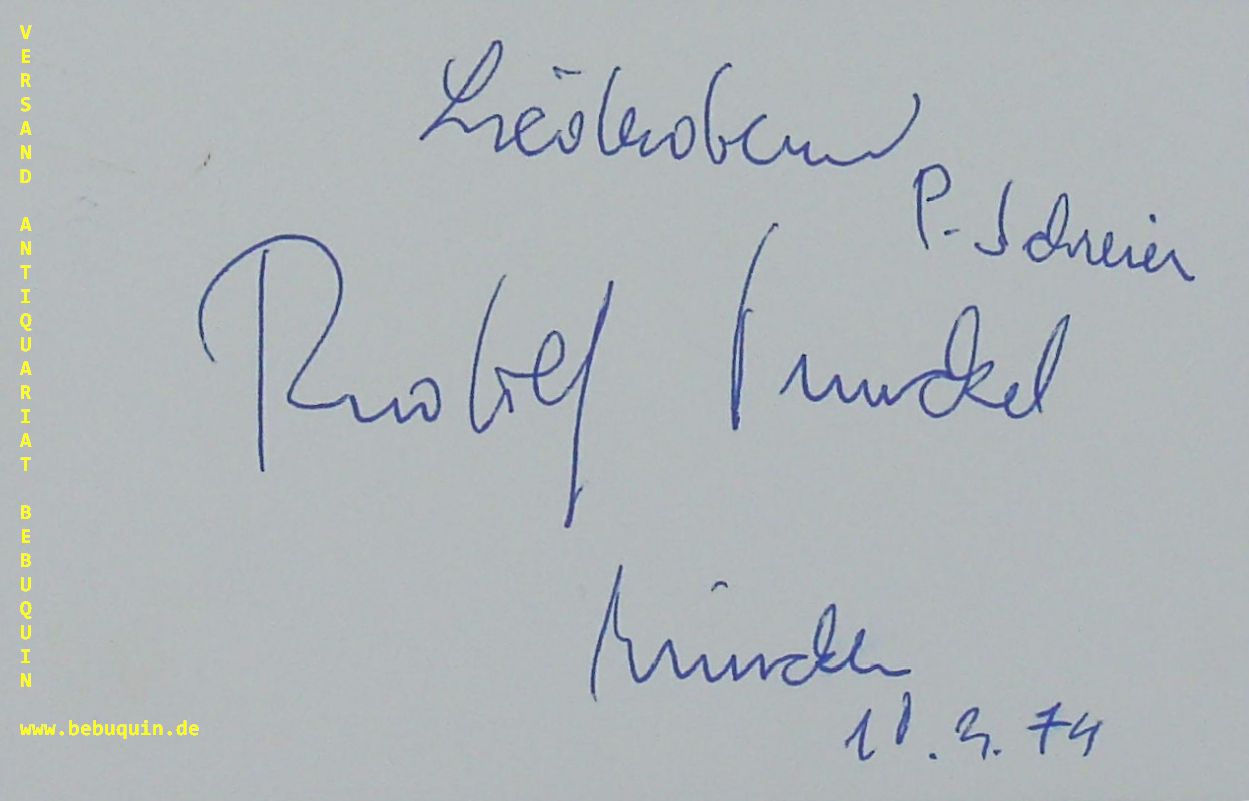 VERSAND ANTIQUARIAT BEBUQUIN
www.bebuquin.de
Liederabend
P. Schreier
Rudolf Dunckel
München
18.3.74